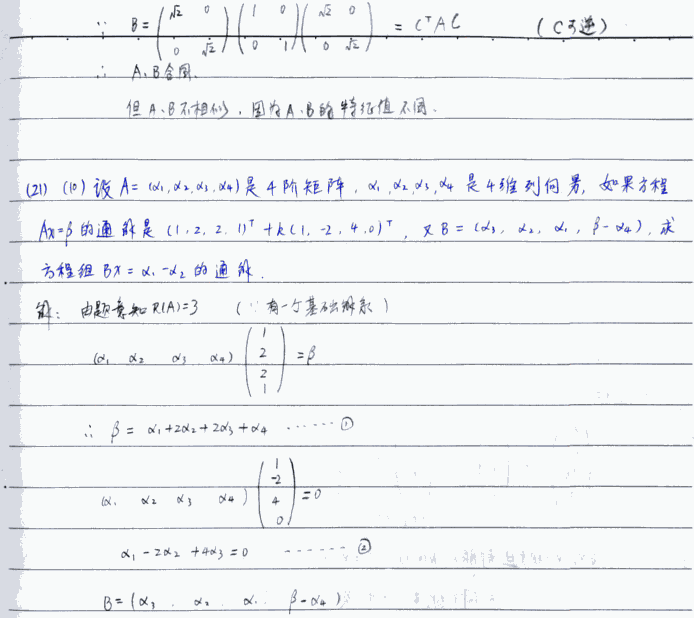 ∵ B = (√2 0; 0 √2)(1 0; 0 1)(√2 0; 0 √2) = CᵀAC (C可逆)
∴ A、B合同.
但A、B不相似, 因为A、B的特征值不同.
(21) (10) 设A=(α₁,α₂,α₃,α₄)是4阶矩阵, α₁,α₂,α₃,α₄是4维列向量, 如果方程
Ax=β的通解是(1,2,2,1)ᵀ+k(1,-2,4,0)ᵀ, 又B=(α₃, α₂, α₁, β-α₄), 求
方程组Bx=α₁-α₂的通解.
解: 由题意知R(A)=3 (∵有一个基础解系)
(α₁ α₂ α₃ α₄)(1; 2; 2; 1)=β
∴ β=α₁+2α₂+2α₃+α₄ ……①
(α₁ α₂ α₃ α₄)(1; -2; 4; 0)=0
α₁-2α₂+4α₃=0 ……②
B=(α₃, α₂, α₁, β-α₄)